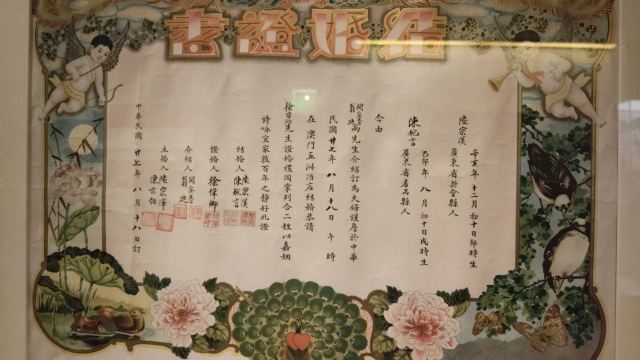 結婚證書
陸榮漢
廣東省新會縣人
辛亥年十二月初十日卯時生
陳婉言
廣東省番禺縣人
年八月初十日戌時生
今由
兩先生介紹訂為夫婦謹詹於中華
民國廿七年八月十八日 時
在澳門五洲酒店結婚恭請
先生證婚禮同掌判合二姓以嘉姻
詩咏宜家敦百年之靜好此證
結婚人 陸榮漢 陳婉言
證婚人 徐偉卿
介紹人
主婚人 陸榮澤
中華民國廿七年八月十八日訂